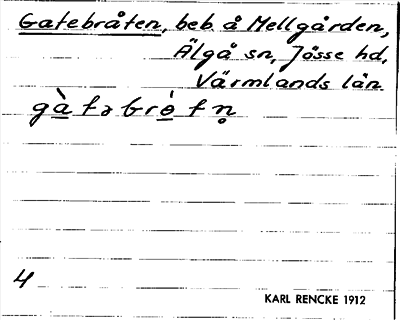 Gatebråten, beb. å Mellgården,
Älgå sn, Jösse hd,
Värmlands län.
gàtəbrètn̥
4
KARL RENCKE 1912